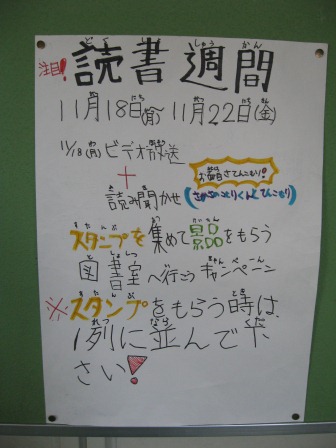 注目! 読書週間
11月18日(月) 11月22日(金)
11/18(月)ビデオ放送
+
読み聞かせ
スタンプを集めて景品をもらう
図書室へ行こうキャンペーン
※スタンプをもらう時は、
1列に並んで下
さい!